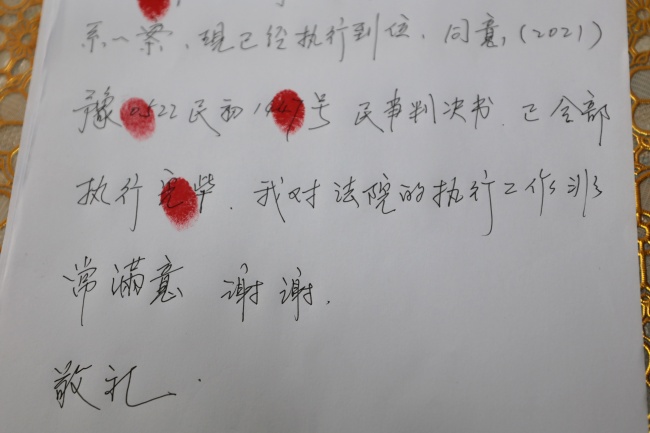 系一案、现已经执行到位、同意,(2021)
豫0522民初1947号 民事判决书、已全部
执行完毕、我对法院的执行工作非
常满意 谢谢.
敬礼.